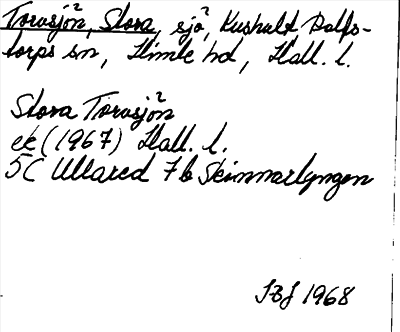 Torvsjön², Stora, sjö², Kushult Rolfs-
torps sn, Himle hd, Hall. l.
Stora Torvsjön²
ek (1967) Hall. l.
5C Ullared 7b Skinnarlyngen
1968